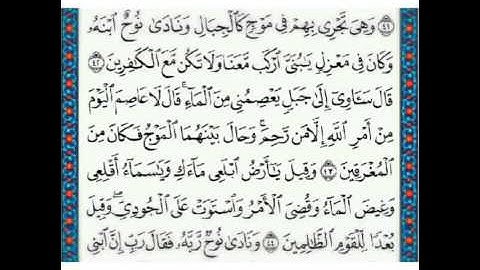 ٤١ وَهِىَ تَجْرِى بِهِمْ فِى مَوْجٍ كَٱلْجِبَالِ وَنَادَىٰ نُوحٌ ٱبْنَهُۥ
وَكَانَ فِى مَعْزِلٍ يَٰبُنَىَّ ٱرْكَب مَّعَنَا وَلَا تَكُن مَّعَ ٱلْكَٰفِرِينَ ٤٢
قَالَ سَـَٔاوِىٓ إِلَىٰ جَبَلٍ يَعْصِمُنِى مِنَ ٱلْمَآءِ ۚ قَالَ لَا عَاصِمَ ٱلْيَوْمَ
مِنْ أَمْرِ ٱللَّهِ إِلَّا مَن رَّحِمَ ۚ وَحَالَ بَيْنَهُمَا ٱلْمَوْجُ فَكَانَ مِنَ
ٱلْمُغْرَقِينَ ٤٣ وَقِيلَ يَٰٓأَرْضُ ٱبْلَعِى مَآءَكِ وَيَٰسَمَآءُ أَقْلِعِى
وَغِيضَ ٱلْمَآءُ وَقُضِىَ ٱلْأَمْرُ وَٱسْتَوَتْ عَلَى ٱلْجُودِىِّ ۖ وَقِيلَ
بُعْدًا لِّلْقَوْمِ ٱلظَّٰلِمِينَ ٤٤ وَنَادَىٰ نُوحٌ رَّبَّهُۥ فَقَالَ رَبِّ إِنَّ ٱبْنِى